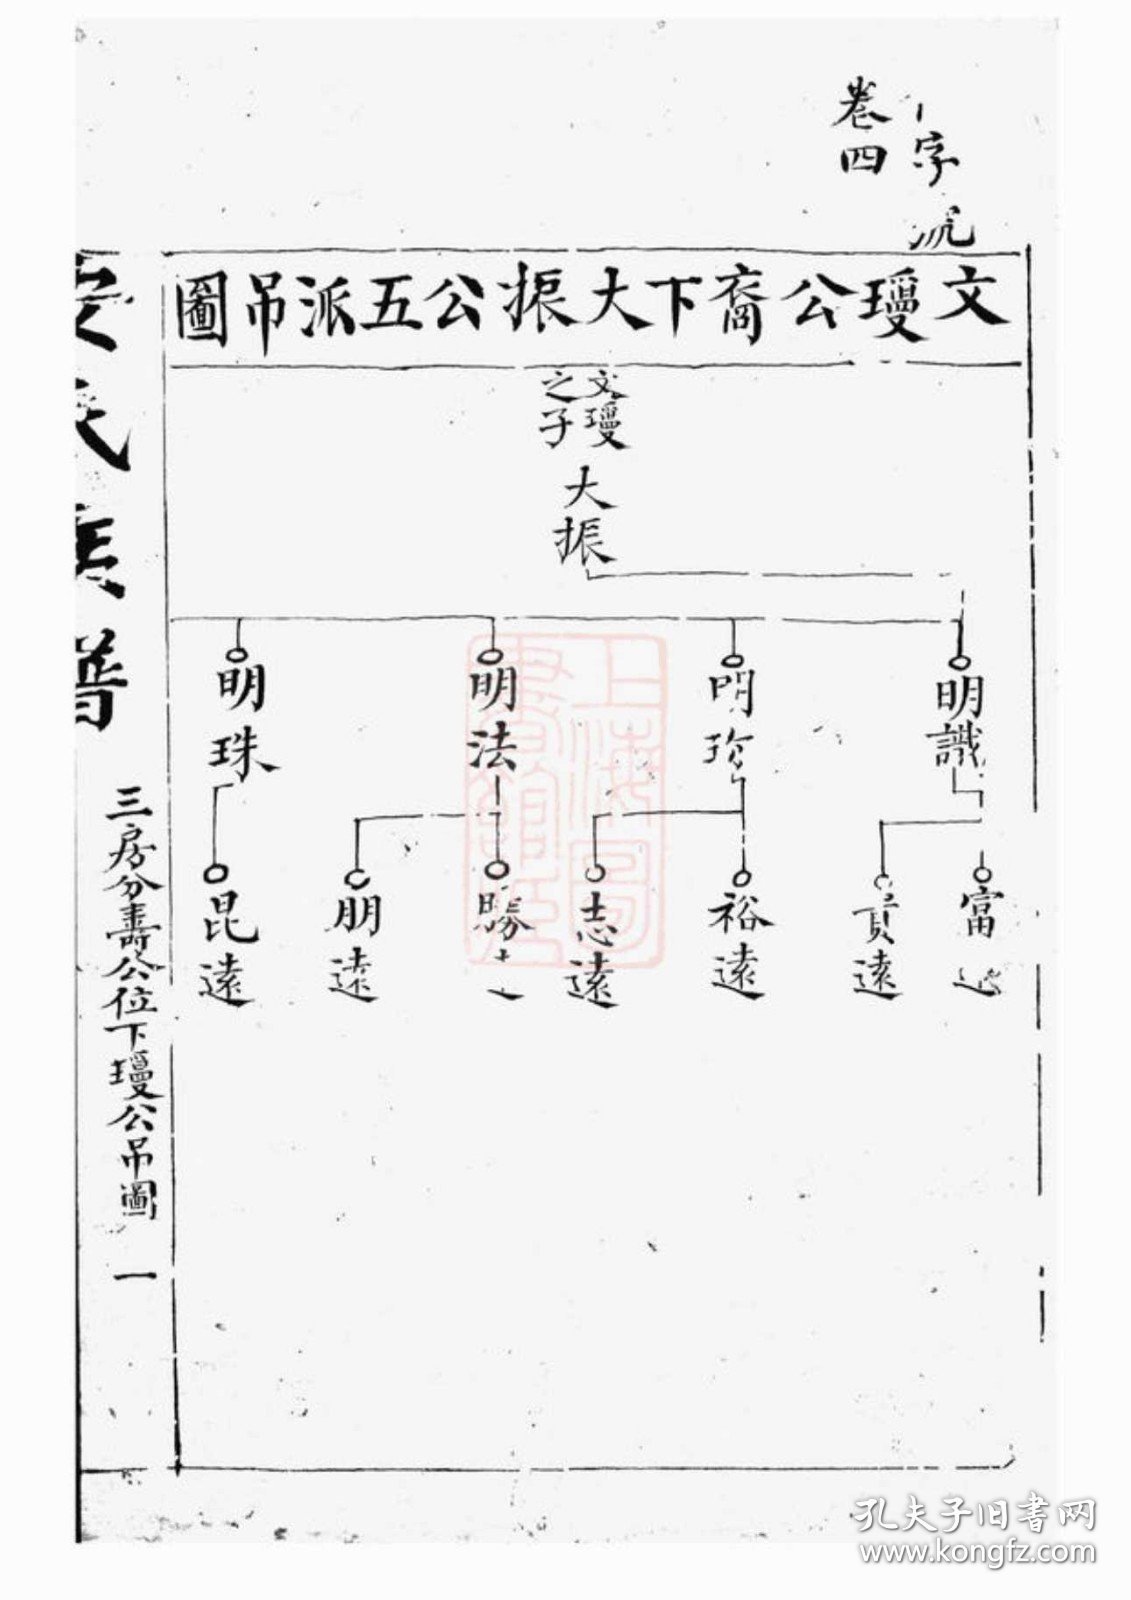 字號
卷四
文瓊公裔下大振公五派吊圖
文瓊之子
大振
明識
明珍
明法
明珠
富
貴遠
裕遠
志遠
勝
朋遠
昆遠
安氏族譜
三房分壽公位下瓊公吊圖 一
上海圖書館藏
孔夫子旧书网
www.kongfz.com